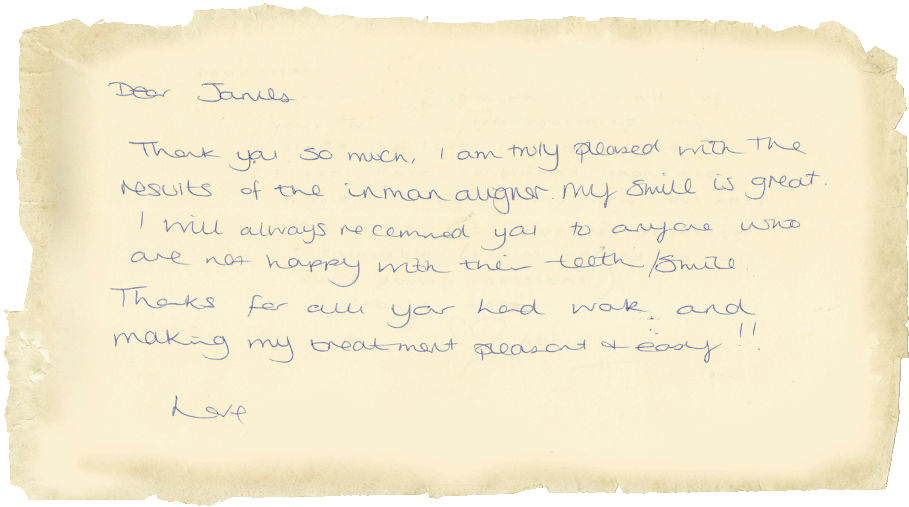 Dear James
Thank you so much, I am truly pleased with the
results of the inman aligner. My smile is great.
I will always recommend you to anyone who
are not happy with their teeth/smile.
Thanks for all your hard work, and
making my treatment pleasant & easy!!
Love